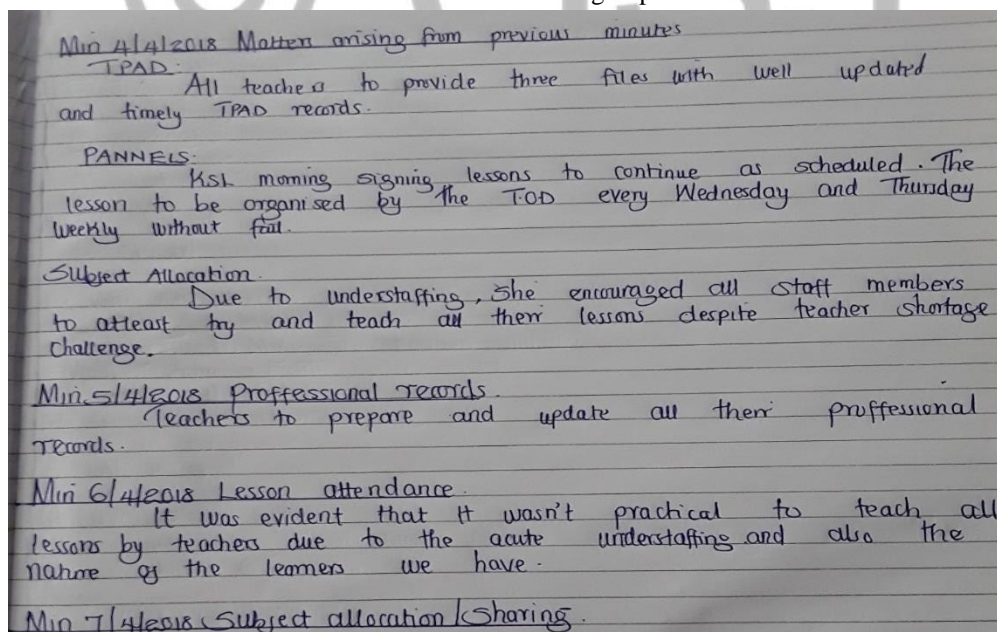 Min 4/4/2018 Matters arising from previous minutes
TPAD:
All teachers to provide three files with well updated
and timely TPAD records.
PANNELS:
KSL morning signing lessons to continue as scheduled. The
lesson to be organised by the T.O.D every Wednesday and Thursday
weekly without fail.
Subject Allocation.
Due to understaffing, she encouraged all staff members
to atleast try and teach all their lessons despite teacher shortage
challenge.
Min 5/4/2018 Proffessional records.
Teachers to prepare and update all their proffessional
records.
Min 6/4/2018 Lesson attendance.
It was evident that it wasn't practical to teach all
lessons by teachers due to the acute understaffing and also the
nature of the learners we have.
Min 7/4/2018 Subject allocation/Sharing.